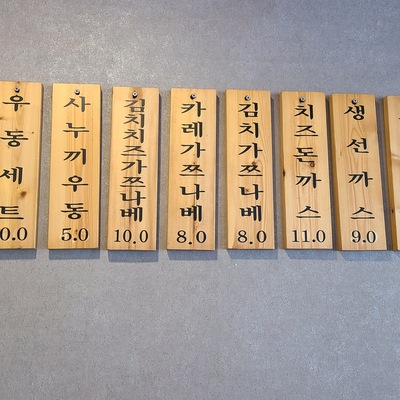 우동세트
0.0
사누끼우동
5.0
김치치즈가쯔나베
10.0
카레가쯔나베
8.0
김치가쯔나베
8.0
치즈돈까스
11.0
생선까스
9.0